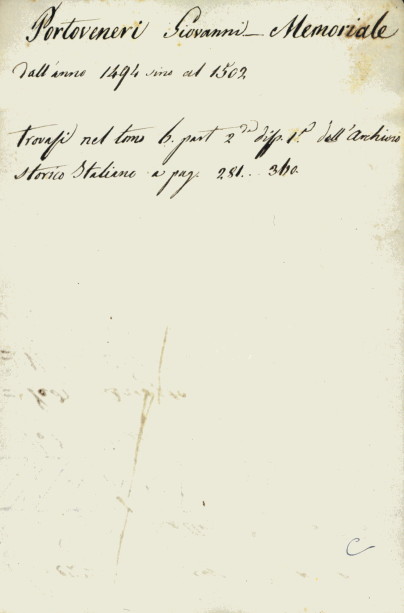 Portoveneri Giovanni – Memoriale
dall'anno 1494 sino al 1502
trovasi nel tomo 6. part 2da disp. 1a dell'Archivio
storico Italiano a pag. 281.. 360.
C